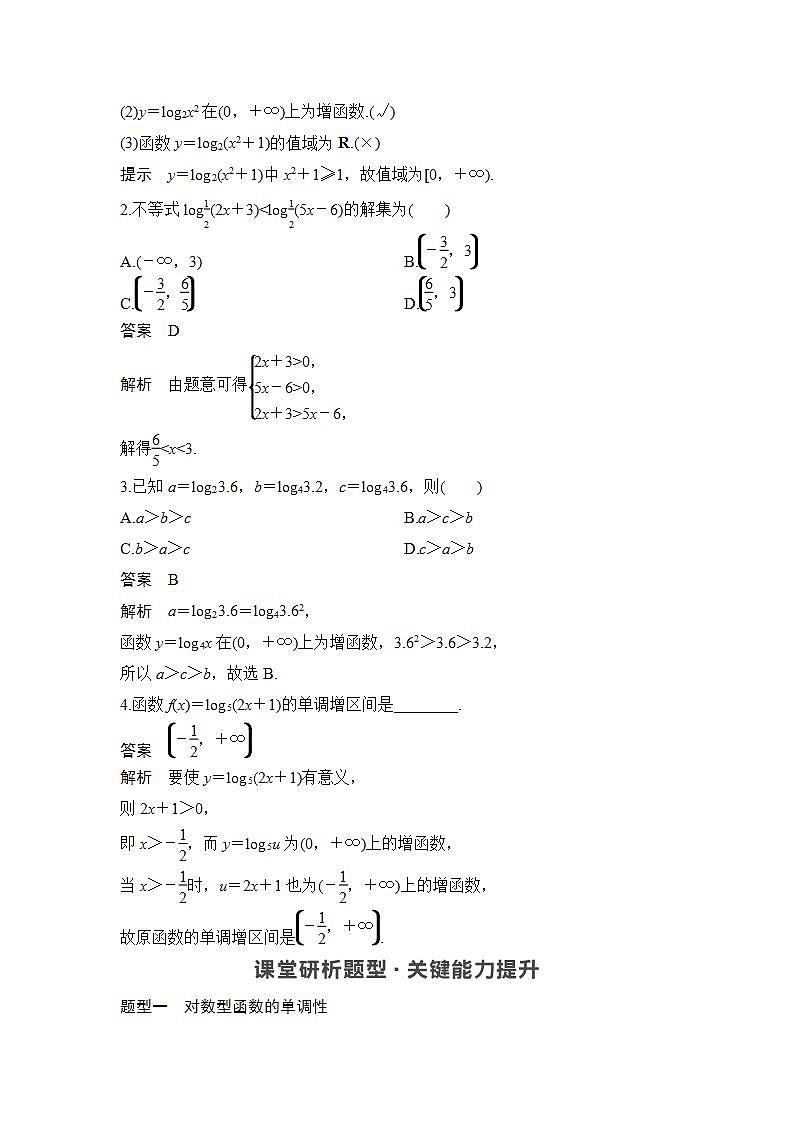 (2)y＝log₂x²在(0，＋∞)上为增函数.(√)
(3)函数y＝log₂(x²＋1)的值域为R.(×)
提示　y＝log₂(x²＋1)中x²＋1≥1，故值域为[0，＋∞).
2.不等式log½(2x＋3)<log½(5x－6)的解集为(　　)
A.(－∞，3)　　B.(－3/2，3)
C.(－3/2，6/5)　　D.(6/5，3)
答案　D
解析　由题意可得{2x＋3>0，
5x－6>0，
2x＋3>5x－6，
解得6/5<x<3.
3.已知a＝log₂3.6，b＝log₄3.2，c＝log₄3.6，则(　　)
A.a＞b＞c　　B.a＞c＞b
C.b＞a＞c　　D.c＞a＞b
答案　B
解析　a＝log₂3.6＝log₄3.6²，
函数y＝log₄x在(0，＋∞)上为增函数，3.6²＞3.6＞3.2，
所以a＞c＞b，故选B.
4.函数f(x)＝log₅(2x＋1)的单调增区间是________.
答案　(－1/2，＋∞)
解析　要使y＝log₅(2x＋1)有意义，
则2x＋1＞0，
即x＞－1/2，而y＝log₅u为(0，＋∞)上的增函数，
当x＞－1/2时，u＝2x＋1也为(－1/2，＋∞)上的增函数，
故原函数的单调增区间是(－1/2，＋∞).
课堂研析题型·关键能力提升
题型一　对数型函数的单调性